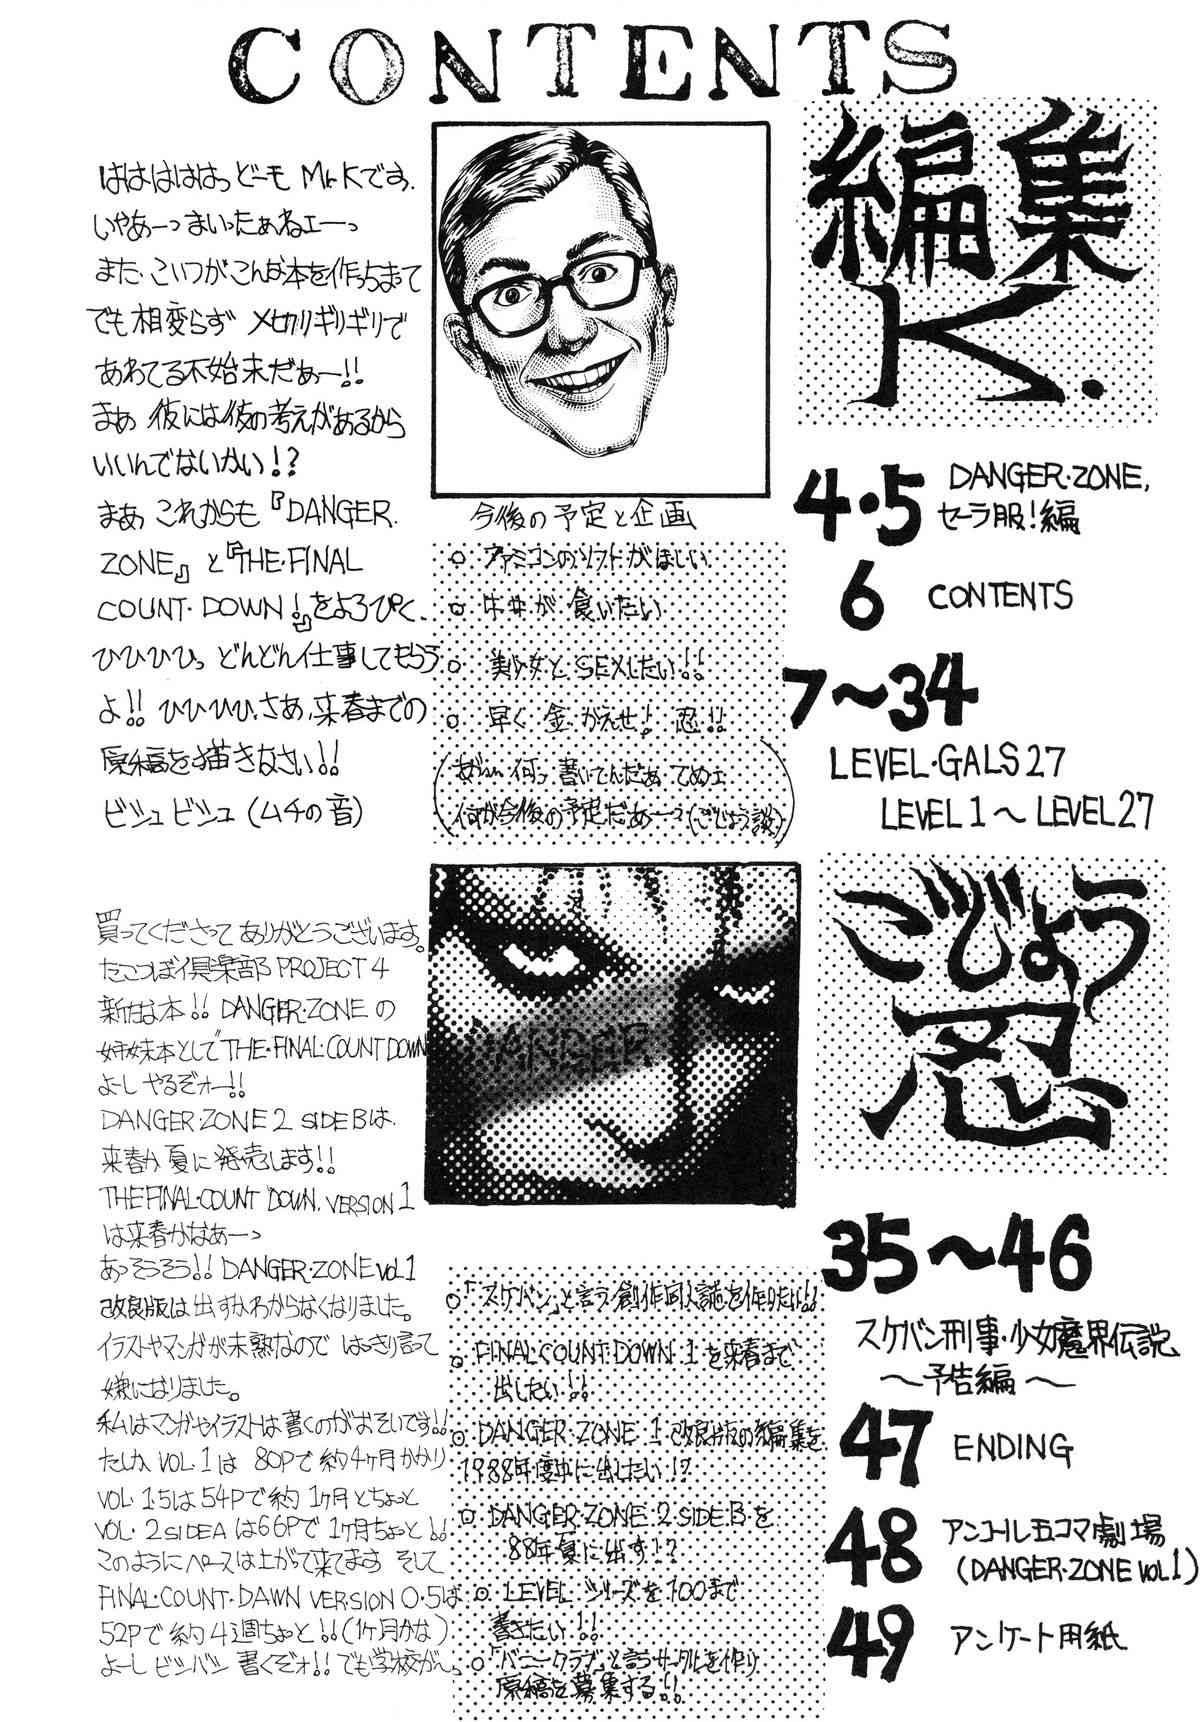 CONTENTS
はははははっどーモ Mr.Kです。
いやあーっまいったぁねェーっ
また、こいつがこんな本を作っちまって
でも相変らず メ切りギリギリで
あわてる不始末だぁー!!
まぁ 彼には彼の考えがあるから
いいんでないかい!?
まぁ これからも『DANGER・
ZONE』と『THE・FINAL
COUNT・DOWN!』をよろぴく、
ひひひひっ どんどん仕事してもらう
よ!! ひひひひ、さあ、来春までの
原稿を描きなさい!!
ビシュ ビシュ (ムチの音)
編集
K.
今後の予定と企画
○ ファミコンのソフトがほしい
○ 牛丼が食いたい
○ 美少女とSEXしたい!!
○ 早く金かえせ! 忍!!
何っ 書いてんだぁ てめェ
何が今後の予定だぁーっ (ごじょう談)
4・5 DANGER・ZONE,
セーラ服!編
6 CONTENTS
7〜34
LEVEL・GALS27
LEVEL1〜LEVEL27
買ってくださって ありがとうございます。
たこつぼ倶楽部 PROJECT 4
新たな本!! DANGER・ZONE の
姉妹本として"THE・FINAL・COUNT DOWN
よーし やるぞォー!!
DANGER・ZONE 2 SIDE Bは、
来春か夏に発売します!!
THE FINAL・COUNT DOWN. VERSION 1
は来春かなあーっ
あっそうそう!! DANGER・ZONE VOL1
改良版は出すかわからなくなりました。
イラストやマンガが未熟なので はっきり言って
嫌になりました。
私はマンガやイラストは書くのがおそいです!!
たしか VOL・1は 80Pで約4ヶ月かかり
VOL・1.5は54Pで約1ヶ月とちょっと
VOL・2SIDEAは66Pで1ヶ月ちょっと!!
このようにペースは上がて来てます そして
FINAL・COUNT・DAWN VERSION 0.5は
52Pで約4週ちょっと!! (1ヶ月かな)
よーし ビシバシ書くぞォ!! でも学校がん。
ごじょう
忍
○「スケバン」と言う創作同人誌を作りたい!!
○ FINAL・COUNT・DOWN 1を来春まで
出したい!!
○ DANGER・ZONE 1 改良版の編集を
1988年度中に出したい!?
○ DANGER・ZONE 2 SIDE B を
88年夏に出す!?
○ LEVEL シリーズを100まで
書きたい!!
○「バニークラブ」と言うサークルを作り
原稿を募集する!!
35〜46
スケバン刑事・少女魔界伝説
〜予告編〜
47 ENDING
48 アンコール五コマ劇場
(DANGER・ZONE VOL1)
49 アンケート用紙